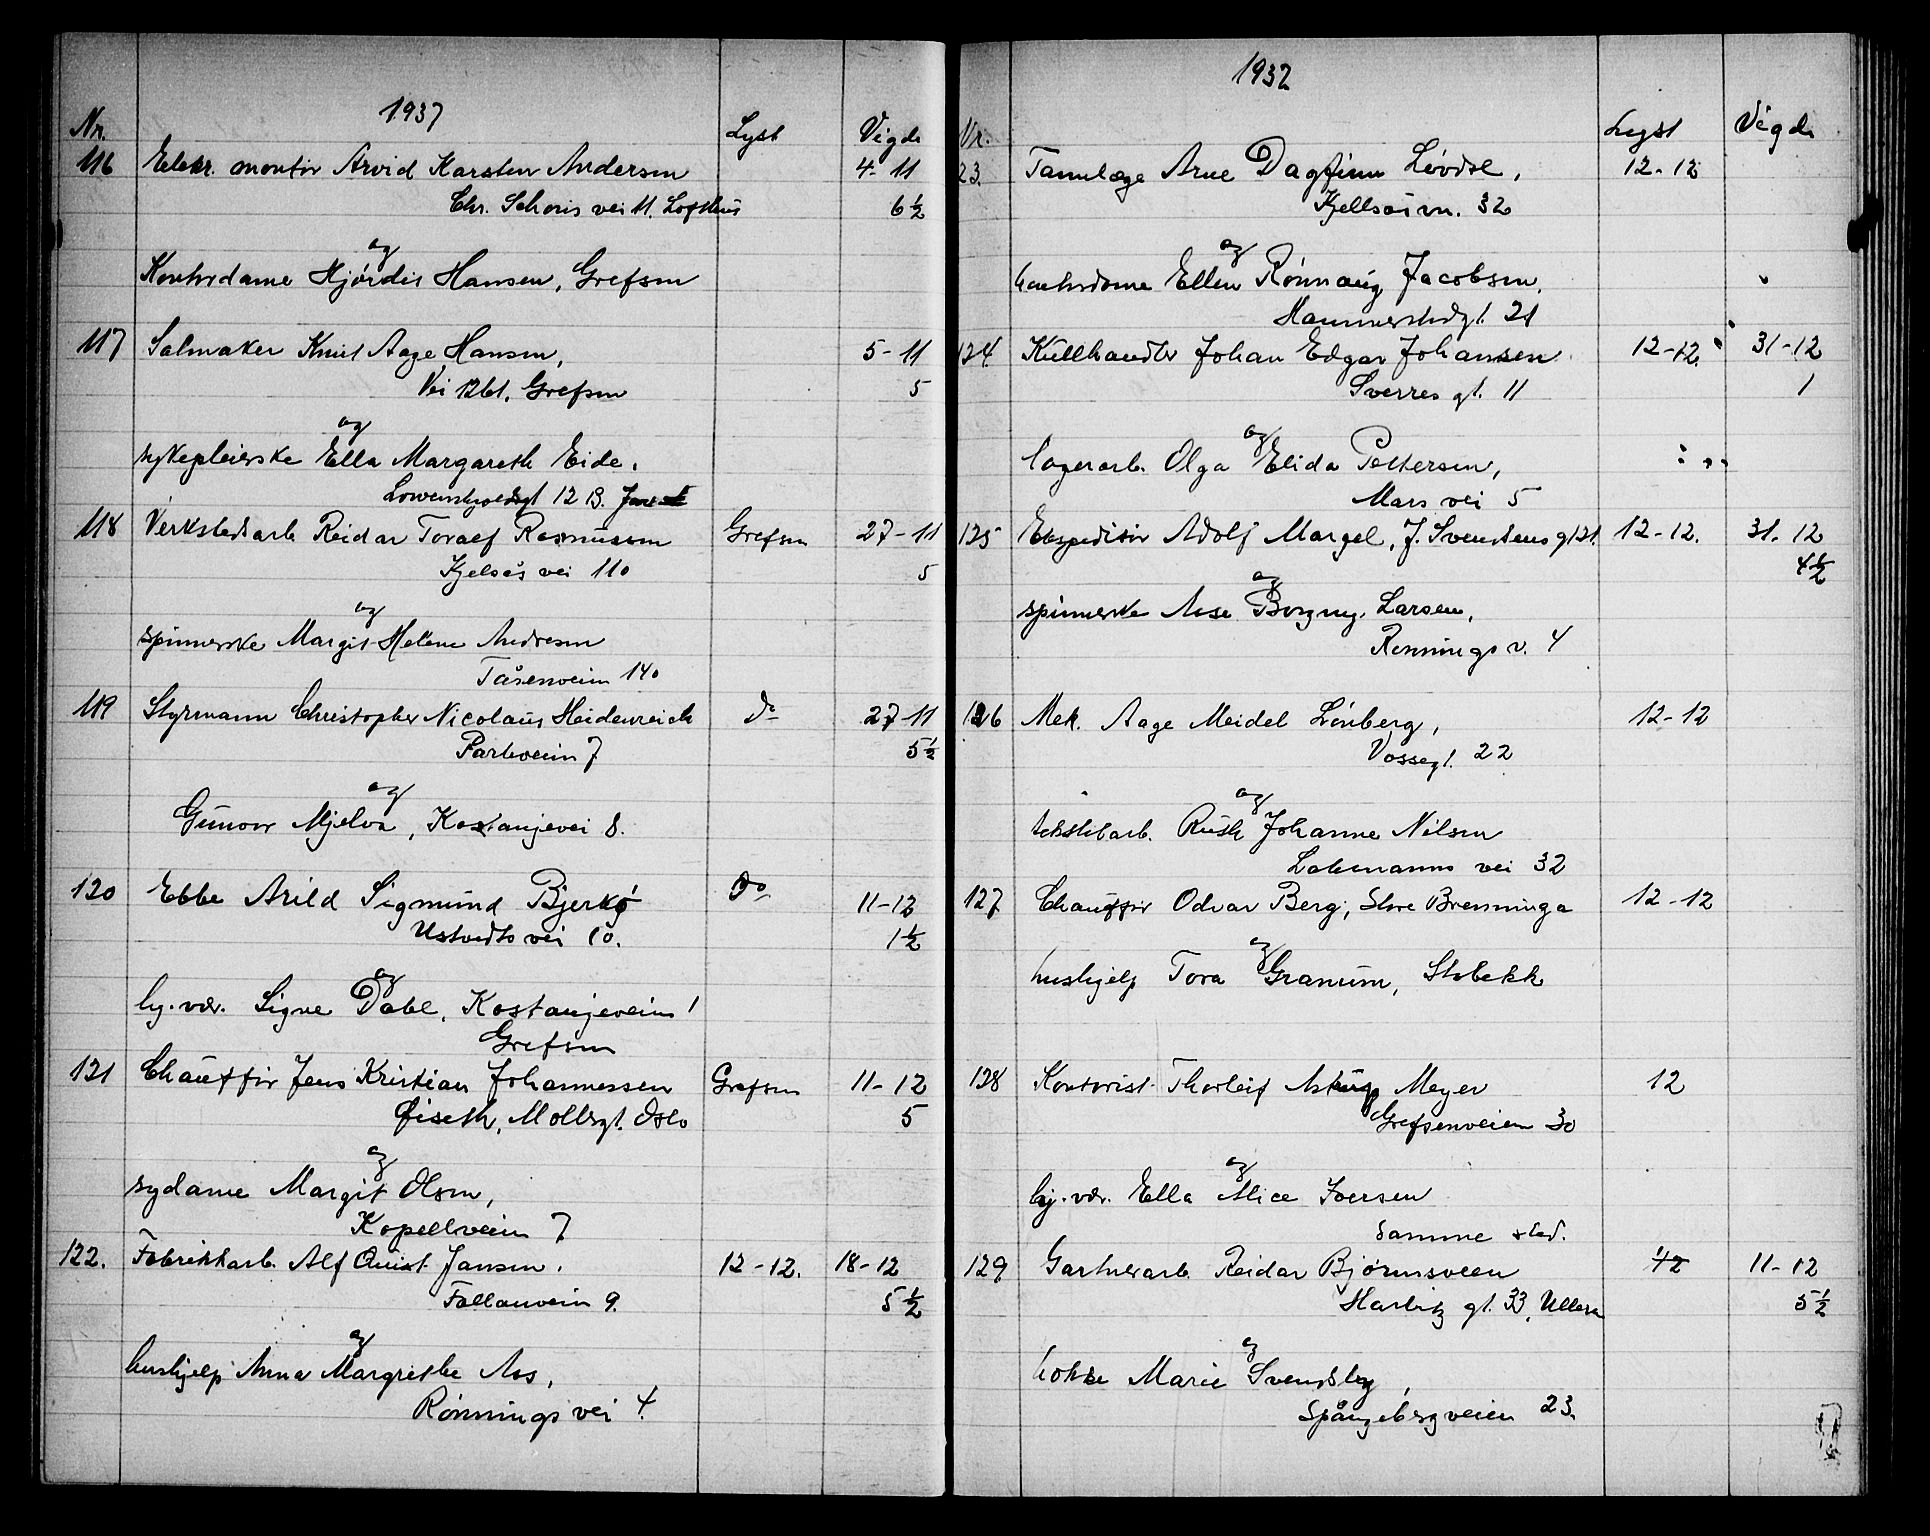 1937
Nr. Lyst Vigde
116 Elektr. montør Arvid Karsten Andersen 4-11
Chr. Schous vei 11. Lofthus 6½
og
Kontordame Hjørdis Hansen, Grefsen
117 Salmaker Knut Aage Hansen, 5-11
Vei 1261, Grefsen 5
og
sykepleierske Ella Margareth Eide.
Lowenskioldsgt 12 B.
118 Verkstedsarb. Reidar Toralf Rasmussen Grefsen 27-11
Kjelsås vei 110 5
og
spinnerske Margit Helene Andresen
Tåsenveien 140
119 Styrmann Christopher Nicolaus Heidenreich do 27-11
Parkveien 7 5½
og
Gunvor Mjelva, Kastanjevei 8.
120 Ebbe Arild Sigmund Bjerkø do 11-12
Ustvedts vei 10. 1½
og
hj. vær. Signe Dahl, Kastanjeveien 1
Grefsen
121 Chauffør Jens Kristian Johannessen Grefsen 11-12
Øiseth, Mollergt. Oslo 5
og
sydame Margit Olsen,
Kapellveien 7
122. Fabrikkarb. Alf Quist Jansen. 12-12. 18-12
Fallanveien 9. 5½
og
hushjelp Anna Margrethe Aas,
Rønnings vei 4.
1932
Nr. Lyst Vigde
23. Tannlæge Arne Dagfinn Løvdal, 12-12
Kjellsåsvn. 32
og
kontordame Ellen Rønnaug Jacobsen,
Hammerstadgt. 21
124. Kullhandler Johan Edgar Johansen 12-12. 31-12
Sverres gt. 11 1
og
lagerarb. Olga Elida Pettersen,
Mars vei 5
125 Ekspeditør Adolf Margel, J. Svendsens gt 21. 12-12. 31-12
4½
og
spinnerske Aase Borgny Larsen,
Rønnings v. 4
126 Mek. Aage Meidel Lönberg, 12-12
Vossegt. 22
og
tekstilarb. Ruth Johanne Nilsen
Lachmanns vei 32
127 Chauffør Odvar Berg, Store Brenninga 12-12
og
hushjelp Tora Granum, Stabekk
128 Kontorist Thorleif Astrup Meyer 12
Grefsenveien 30
og
hj. vær. Ella Alice Iversen
samme sted.
129 Gartnerarb. Reidar Bjørnsveen 12 11-12
Harbitz gt. 33, Ullern 5½
og
kokke Marie Svendsby,
Spångbergveien 23.